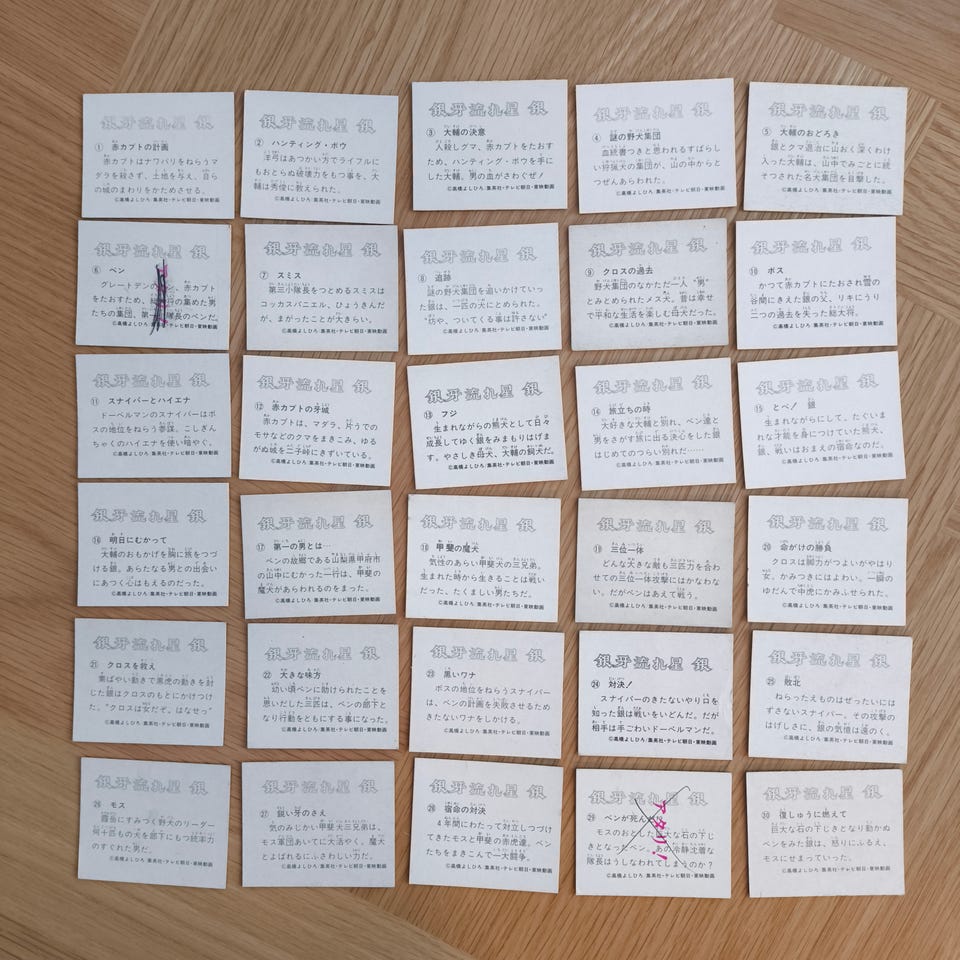 銀牙流れ星 銀
① 赤カブトの計画
赤カブトはナワバリをねらうマ
ダラを殺さず、土地を与え、自ら
の城のまわりをかためさせる。
©高橋よしひろ/集英社・テレビ朝日・東映動画
銀牙流れ星 銀
② ハンティング・ボウ
洋弓はあつかい方でライフルに
もおとらぬ破壊力をもつ事を、大
輔は秀俊に教えられた。
©高橋よしひろ/集英社・テレビ朝日・東映動画
銀牙流れ星 銀
③ 大輔の決意
人殺しグマ、赤カブトをたおす
ため、ハンティング・ボウを手に
した大輔、男の血がさわぐぜ!
©高橋よしひろ/集英社・テレビ朝日・東映動画
銀牙流れ星 銀
④ 謎の野犬集団
血統書つきと思われるすばらし
い狩猟犬の集団が、山の中からと
つぜんあらわれた。
©高橋よしひろ/集英社・テレビ朝日・東映動画
銀牙流れ星 銀
⑤ 大輔のおどろき
銀とクマ退治に山おく深くわけ
入った大輔は、山中でみごとに統
そつされた名犬集団を目撃した。
©高橋よしひろ/集英社・テレビ朝日・東映動画
銀牙流れ星 銀
⑥ ベン
グレートデンの 、赤カブト
をたおすため、総 将の集めた男
たちの集団、第一 隊長のベンだ。
©高橋よしひろ/集英社・テレビ朝日・東映動画
銀牙流れ星 銀
⑦ スミス
第三小隊長をつとめるスミスは
コッカスパニエル、ひょうきんだ
が、まがったことが大きらい。
©高橋よしひろ/集英社・テレビ朝日・東映動画
銀牙流れ星 銀
⑧ 追跡
謎の野犬集団を追いかけていっ
た銀は、一匹の犬にとめられた。
“坊や、ついてくる事は許さない”
©高橋よしひろ/集英社・テレビ朝日・東映動画
銀牙流れ星 銀
⑨ クロスの過去
野犬集団のなかただ一人“男”
とみとめられたメス犬。昔は幸せ
で平和な生活を楽しむ母犬だった。
©高橋よしひろ/集英社・テレビ朝日・東映動画
銀牙流れ星 銀
⑩ ボス
かつて赤カブトにたおされ雪の
谷間にきえた銀の父、リキにうり
二つの過去を失った総大将。
©高橋よしひろ/集英社・テレビ朝日・東映動画
銀牙流れ星 銀
⑪ スナイパーとハイエナ
ドーベルマンのスナイパーはボ
スの地位をねらう参謀。こしぎん
ちゃくのハイエナを使い暗やく。
©高橋よしひろ/集英社・テレビ朝日・東映動画
銀牙流れ星 銀
⑫ 赤カブトの牙城
赤カブトは、マダラ、片うでの
モサなどのクマをまきこみ、ゆる
がぬ城を二子峠にきずいている。
©高橋よしひろ/集英社・テレビ朝日・東映動画
銀牙流れ星 銀
⑬ フジ
生まれながらの熊犬として日々
成長してゆく銀をみまもりはげま
す。やさしき母犬、大輔の飼犬だ。
©高橋よしひろ/集英社・テレビ朝日・東映動画
銀牙流れ星 銀
⑭ 旅立ちの時
大好きな大輔と別れ、ベン達と
男をさがす旅に出る決心をした銀
はじめてのつらい別れだ……
©高橋よしひろ/集英社・テレビ朝日・東映動画
銀牙流れ星 銀
⑮ とべ! 銀
生まれながらにして、たぐいま
れな才能を身につけていた熊犬、
銀、戦いはおまえの宿命なのだ。
©高橋よしひろ/集英社・テレビ朝日・東映動画
銀牙流れ星 銀
⑯ 明日にむかって
大輔のおもかげを胸に旅をつづ
ける銀。あらたなる男との出会い
にあつく心はもえるのだった。
©高橋よしひろ/集英社・テレビ朝日・東映動画
銀牙流れ星 銀
⑰ 第一の男とは…
ベンの故郷である山梨県甲府市
の山中にむかった一行は、甲斐の
魔犬があらわれるのをまった。
©高橋よしひろ/集英社・テレビ朝日・東映動画
銀牙流れ星 銀
⑱ 甲斐の魔犬
気性のあらい甲斐犬の三兄弟。
生まれた時から生きることは戦い
だった、たくましい男たちだ。
©高橋よしひろ/集英社・テレビ朝日・東映動画
銀牙流れ星 銀
⑲ 三位一体
どんな大きな敵も三匹力を合わ
せての三位一体攻撃にはかなわな
い。だがベンはあえて戦う。
©高橋よしひろ/集英社・テレビ朝日・東映動画
銀牙流れ星 銀
⑳ 命がけの勝負
クロスは脚力がつよいがやはり
女。かみつきにはよわい。一瞬の
ゆだんで中虎にかみふせられた。
©高橋よしひろ/集英社・テレビ朝日・東映動画
銀牙流れ星 銀
㉑ クロスを救え
素ばやい動きで黒虎の動きを封
じた銀はクロスのもとにかけつけ
た。“クロスは女だぞ。はなせっ”
©高橋よしひろ/集英社・テレビ朝日・東映動画
銀牙流れ星 銀
㉒ 大きな味方
幼い頃ベンに助けられたことを
思いだした三匹は、ベンの部下と
なり行動をともにする事になった。
©高橋よしひろ/集英社・テレビ朝日・東映動画
銀牙流れ星 銀
㉓ 黒いワナ
ボスの地位をねらうスナイパー
は、ベンの計画を失敗させるため
きたないワナをしかける。
©高橋よしひろ/集英社・テレビ朝日・東映動画
銀牙流れ星 銀
㉔ 対決!
スナイパーのきたないやり口を
知った銀は戦いをいどんだ。だが
相手は手ごわいドーベルマンだ。
©高橋よしひろ/集英社・テレビ朝日・東映動画
銀牙流れ星 銀
㉕ 敗北
ねらったえものはぜったいには
ずさないスナイパー。その攻撃の
はげしさに、銀の気憶は遠のく。
©高橋よしひろ/集英社・テレビ朝日・東映動画
銀牙流れ星 銀
㉖ モス
霧岳にすみつく野犬のリーダー
何十匹もの犬を部下にもつ統率力
のすぐれた男だ。
©高橋よしひろ/集英社・テレビ朝日・東映動画
銀牙流れ星 銀
㉗ 鋭い牙のさえ
気のみじかい甲斐犬三兄弟は、
モス軍団あいてに大活やく、魔犬
とよばれるにふさわしい力だ。
©高橋よしひろ/集英社・テレビ朝日・東映動画
銀牙流れ星 銀
㉘ 宿命の対決
4年間にわたって対立しつづけ
てきたモスと甲斐の赤虎達。ベン
たちをまきこんで一大闘争。
©高橋よしひろ/集英社・テレビ朝日・東映動画
銀牙流れ星 銀
㉙ ベンが死んだ?
モスのおとした巨大な石の下じ
きとなったベン。あの冷静沈着な
隊長はうしなわれてしまうのか?
アタリ!
©高橋よしひろ/集英社・テレビ朝日・東映動画
銀牙流れ星 銀
㉚ 復しゅうに燃えて
巨大な石の下じきとなり動かぬ
ベンをみた銀は、怒りにふるえ、
モスにせまっていった。
©高橋よしひろ/集英社・テレビ朝日・東映動画